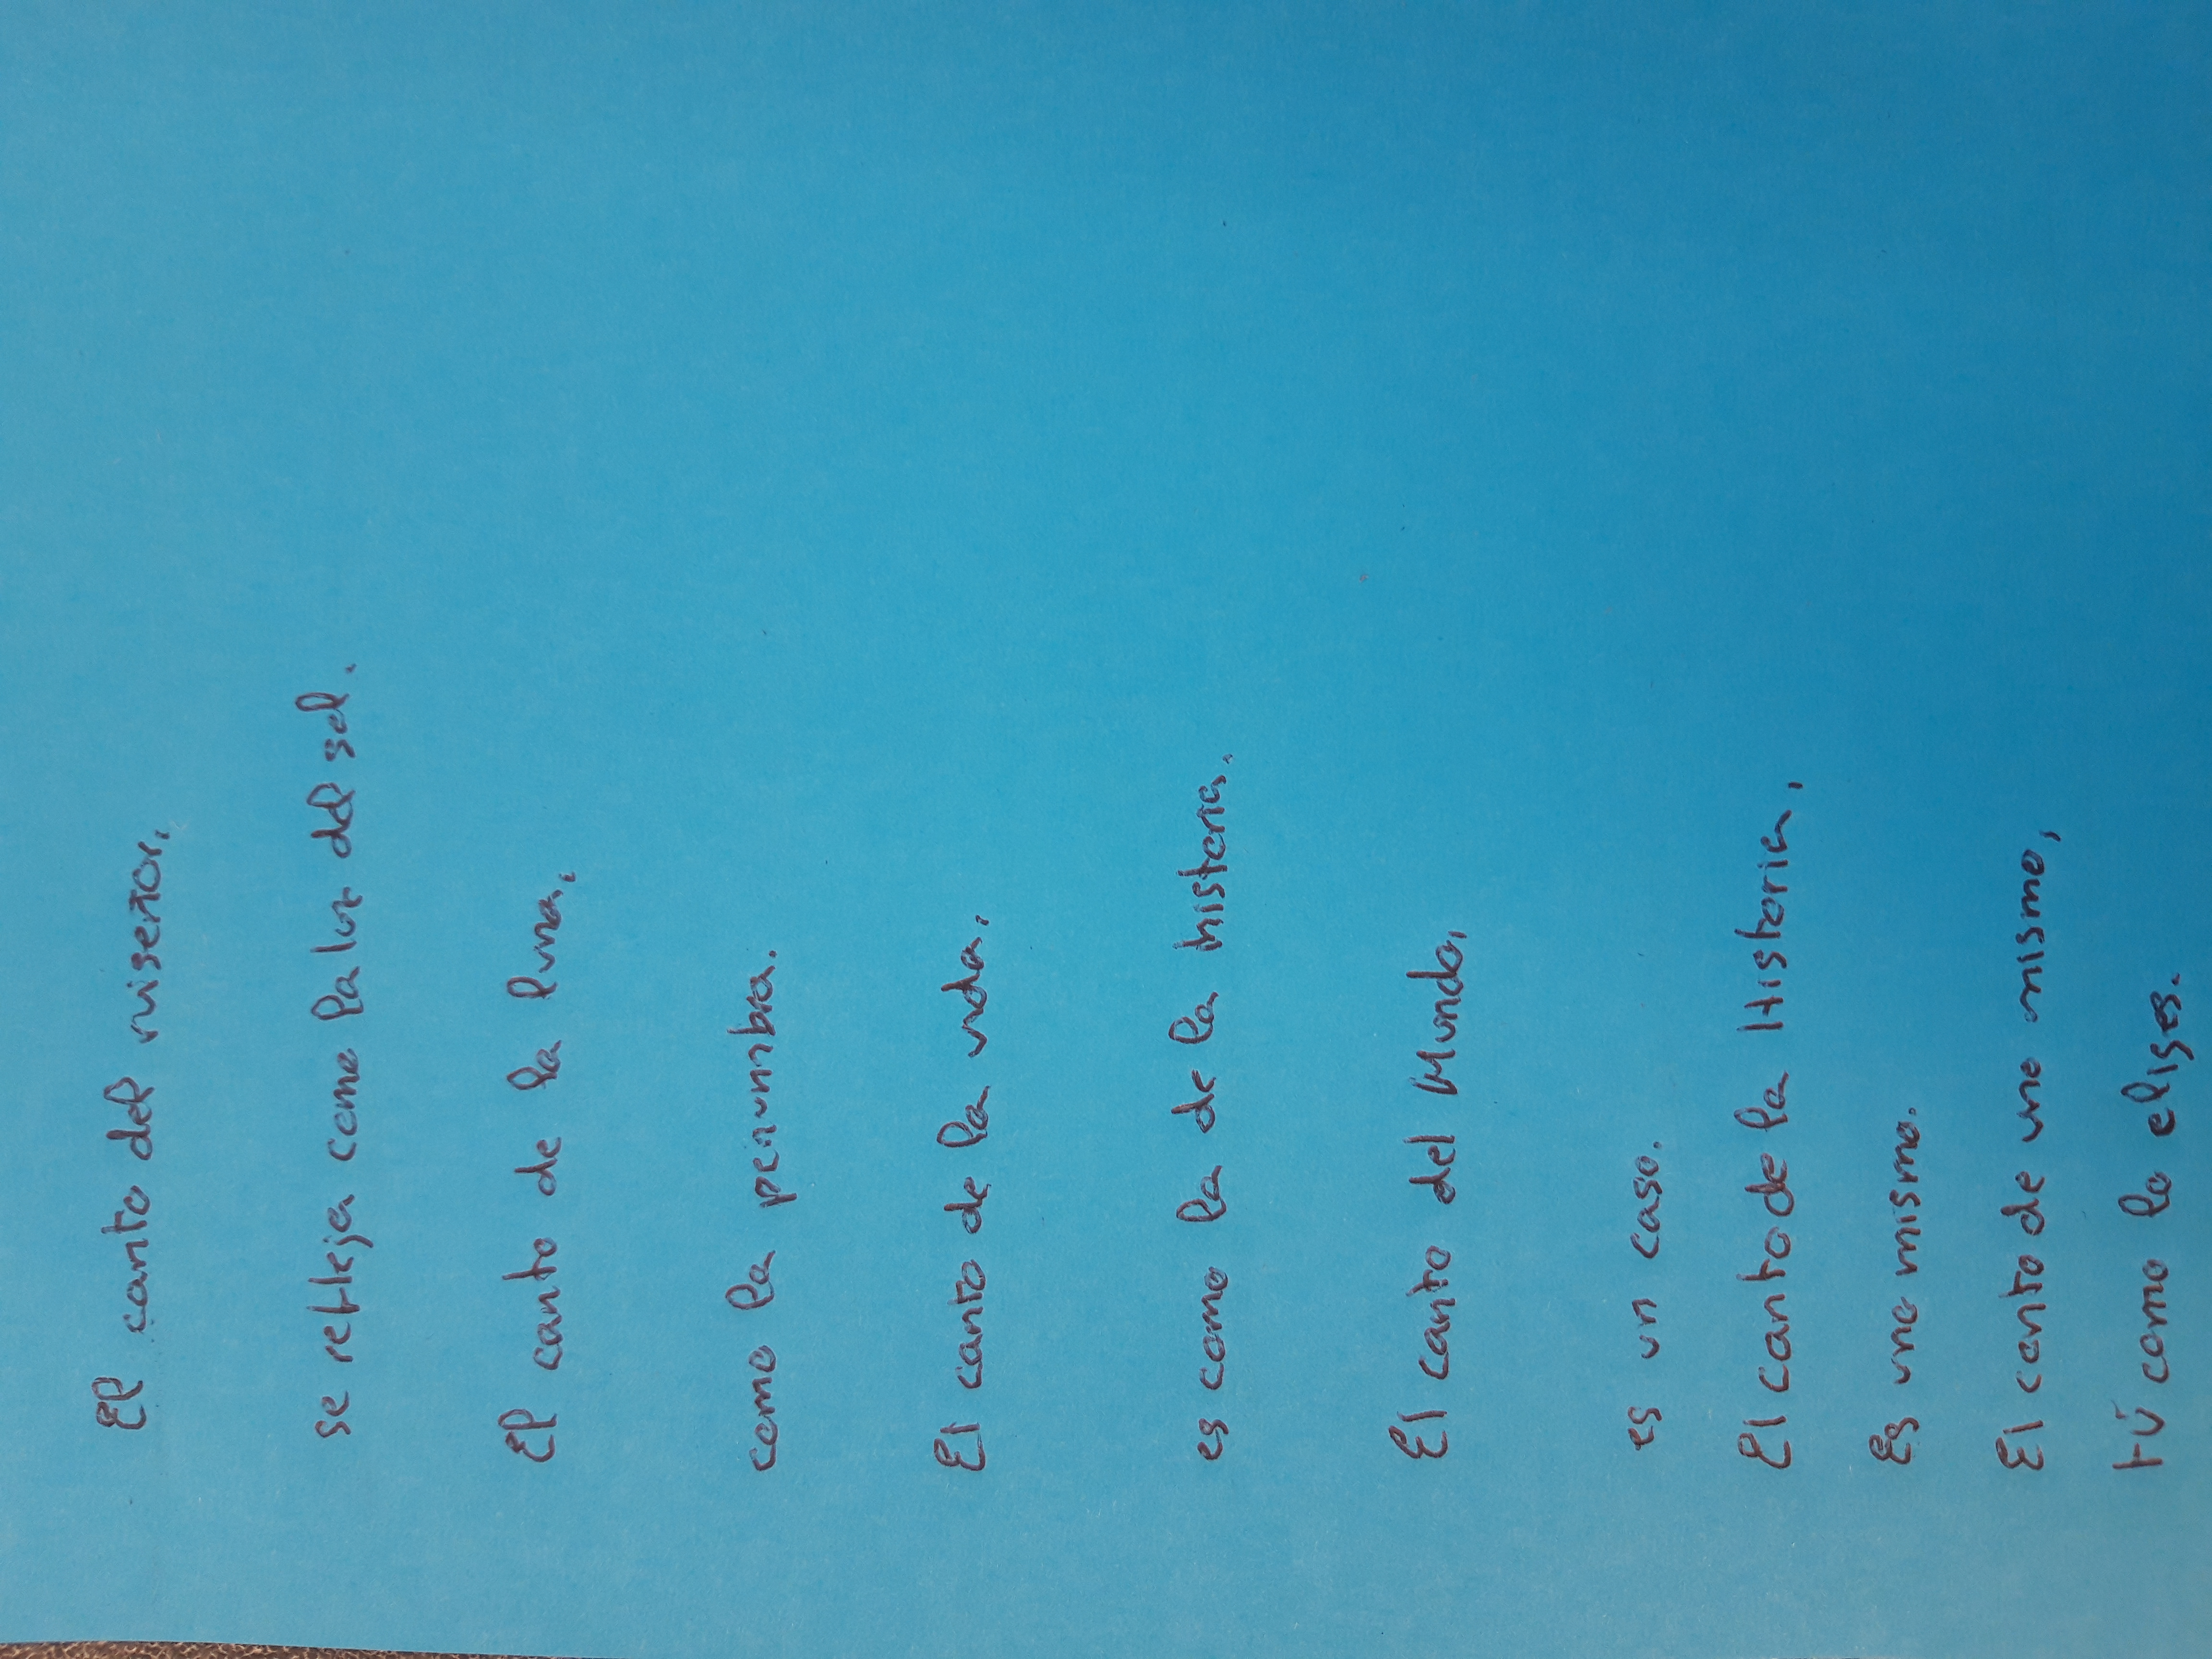 El canto del ruiseñor,
se refleja como la luz del sol.
El canto de la luna,
como la penumbra.
El canto de la vida,
es como la de la historia.
El canto del Mundo,
es un caso.
El canto de la Historia,
Es uno mismo.
El canto de uno mismo,
tú como lo eliges.